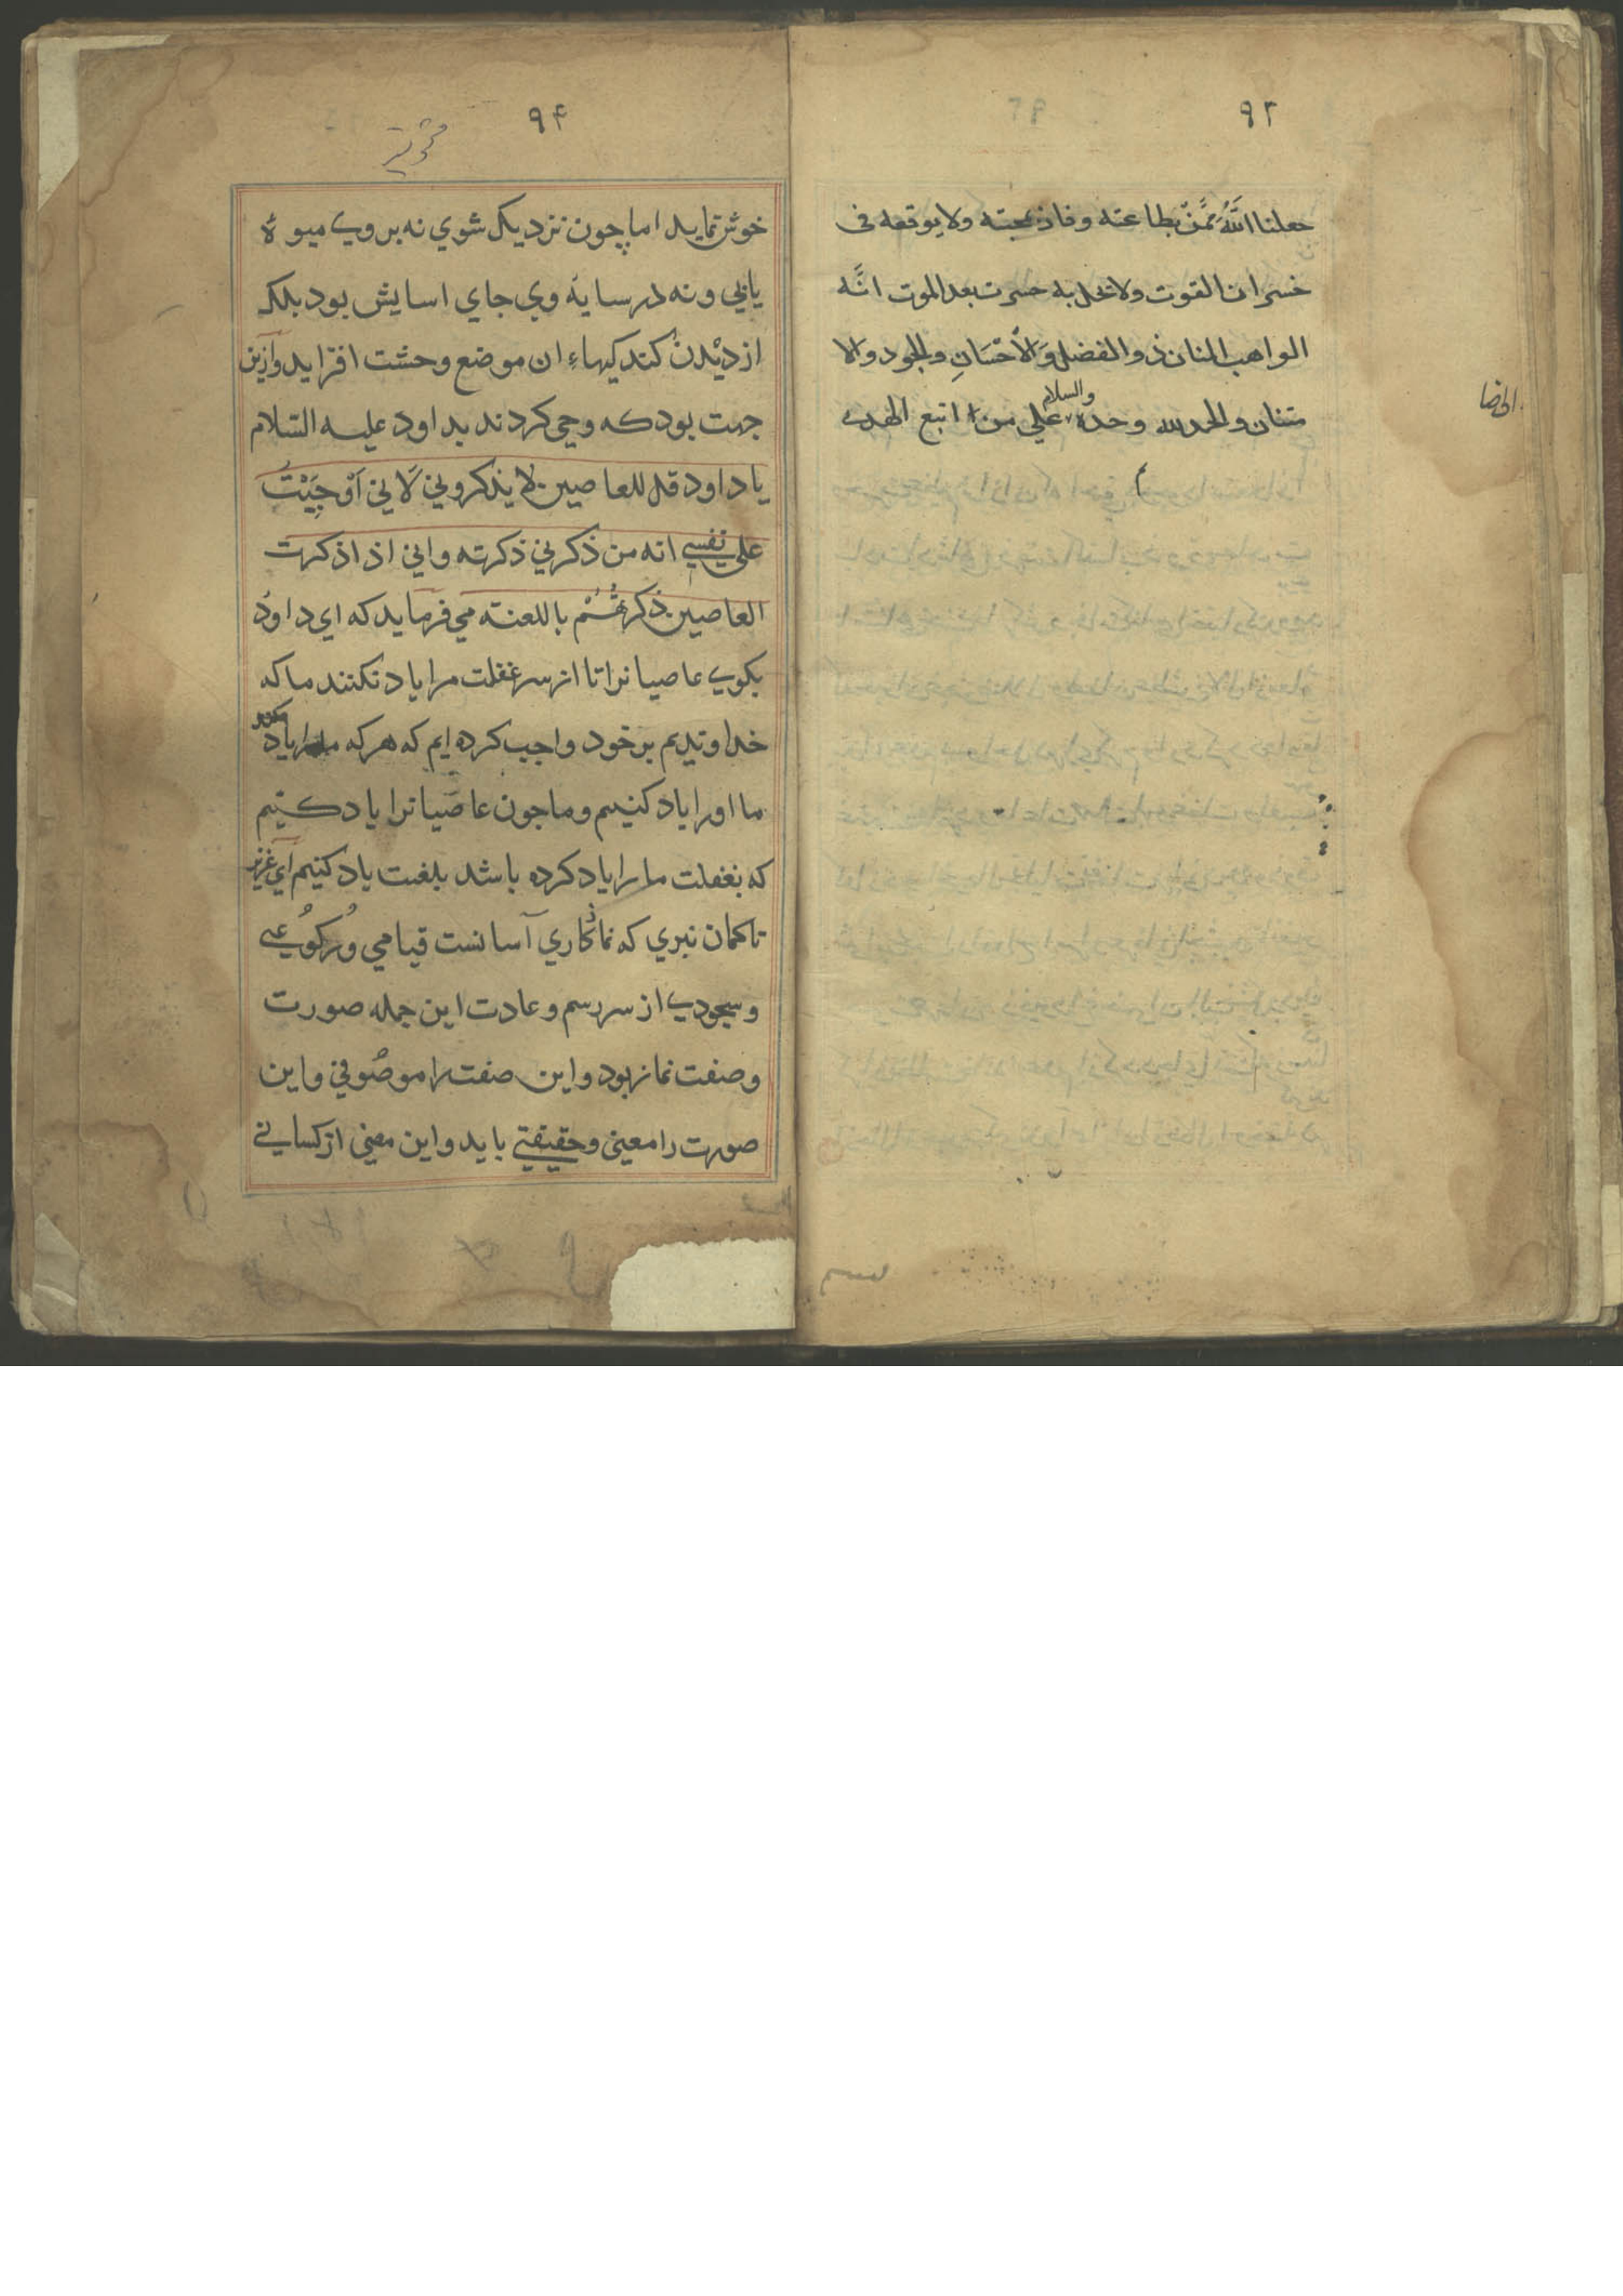 ٩٢
جعلنا الله ممن بطاعته وفاز بجنته ولا یوقعه فی
خسران الفوت ولا تحل به حسرت بعد الموت انَّه
الواهب المنان ذو الفضل وَالاُحْسَانِ والجود والا
متنان والحمد لله وحدهٗ والسلام علی من اتبع الهدی
٩۴
خوش نماید اما چون نزدیک شوي نه بروی میوهٔ
یابي و نه در سایهٔ وي جاي اسایش بود بلکه
از دیْدن کند کیهاءِ ان موضع وحشت افزاید وازین
جهت بود که وحي کردند بداود علیه السّلام
یا داود قل للعاصین لا یذکروني لَانِي اَوْجَبْتُ
علی نفسي انه من ذکرني ذکرته واني اذا ذکرت
العاصین ذکرتُهُمْ باللعنته مي فرماید که اي داود
بکوی عاصیانرا تا از سر غفلت مرا یاد نکنند ما که
خداوندیم بر خود واجب کرده ایم که هر که مارا یاد کند
ما اورا یاد کنیم و ما چون عاصیانرا یاد کنیم
که بغفلت مارا یاد کرده باشد بلغنت یاد کنیم اَي عزیز
تا کمان نبري که نماز کاري آسانست قیامي وُرکُوعی
و سجودی از سر رسم و عادت این جمله صورت
و صفت نماز بود و این صفت را موصُوفي و این
صورت را معني و حقیقتي باید و این معني از کساني